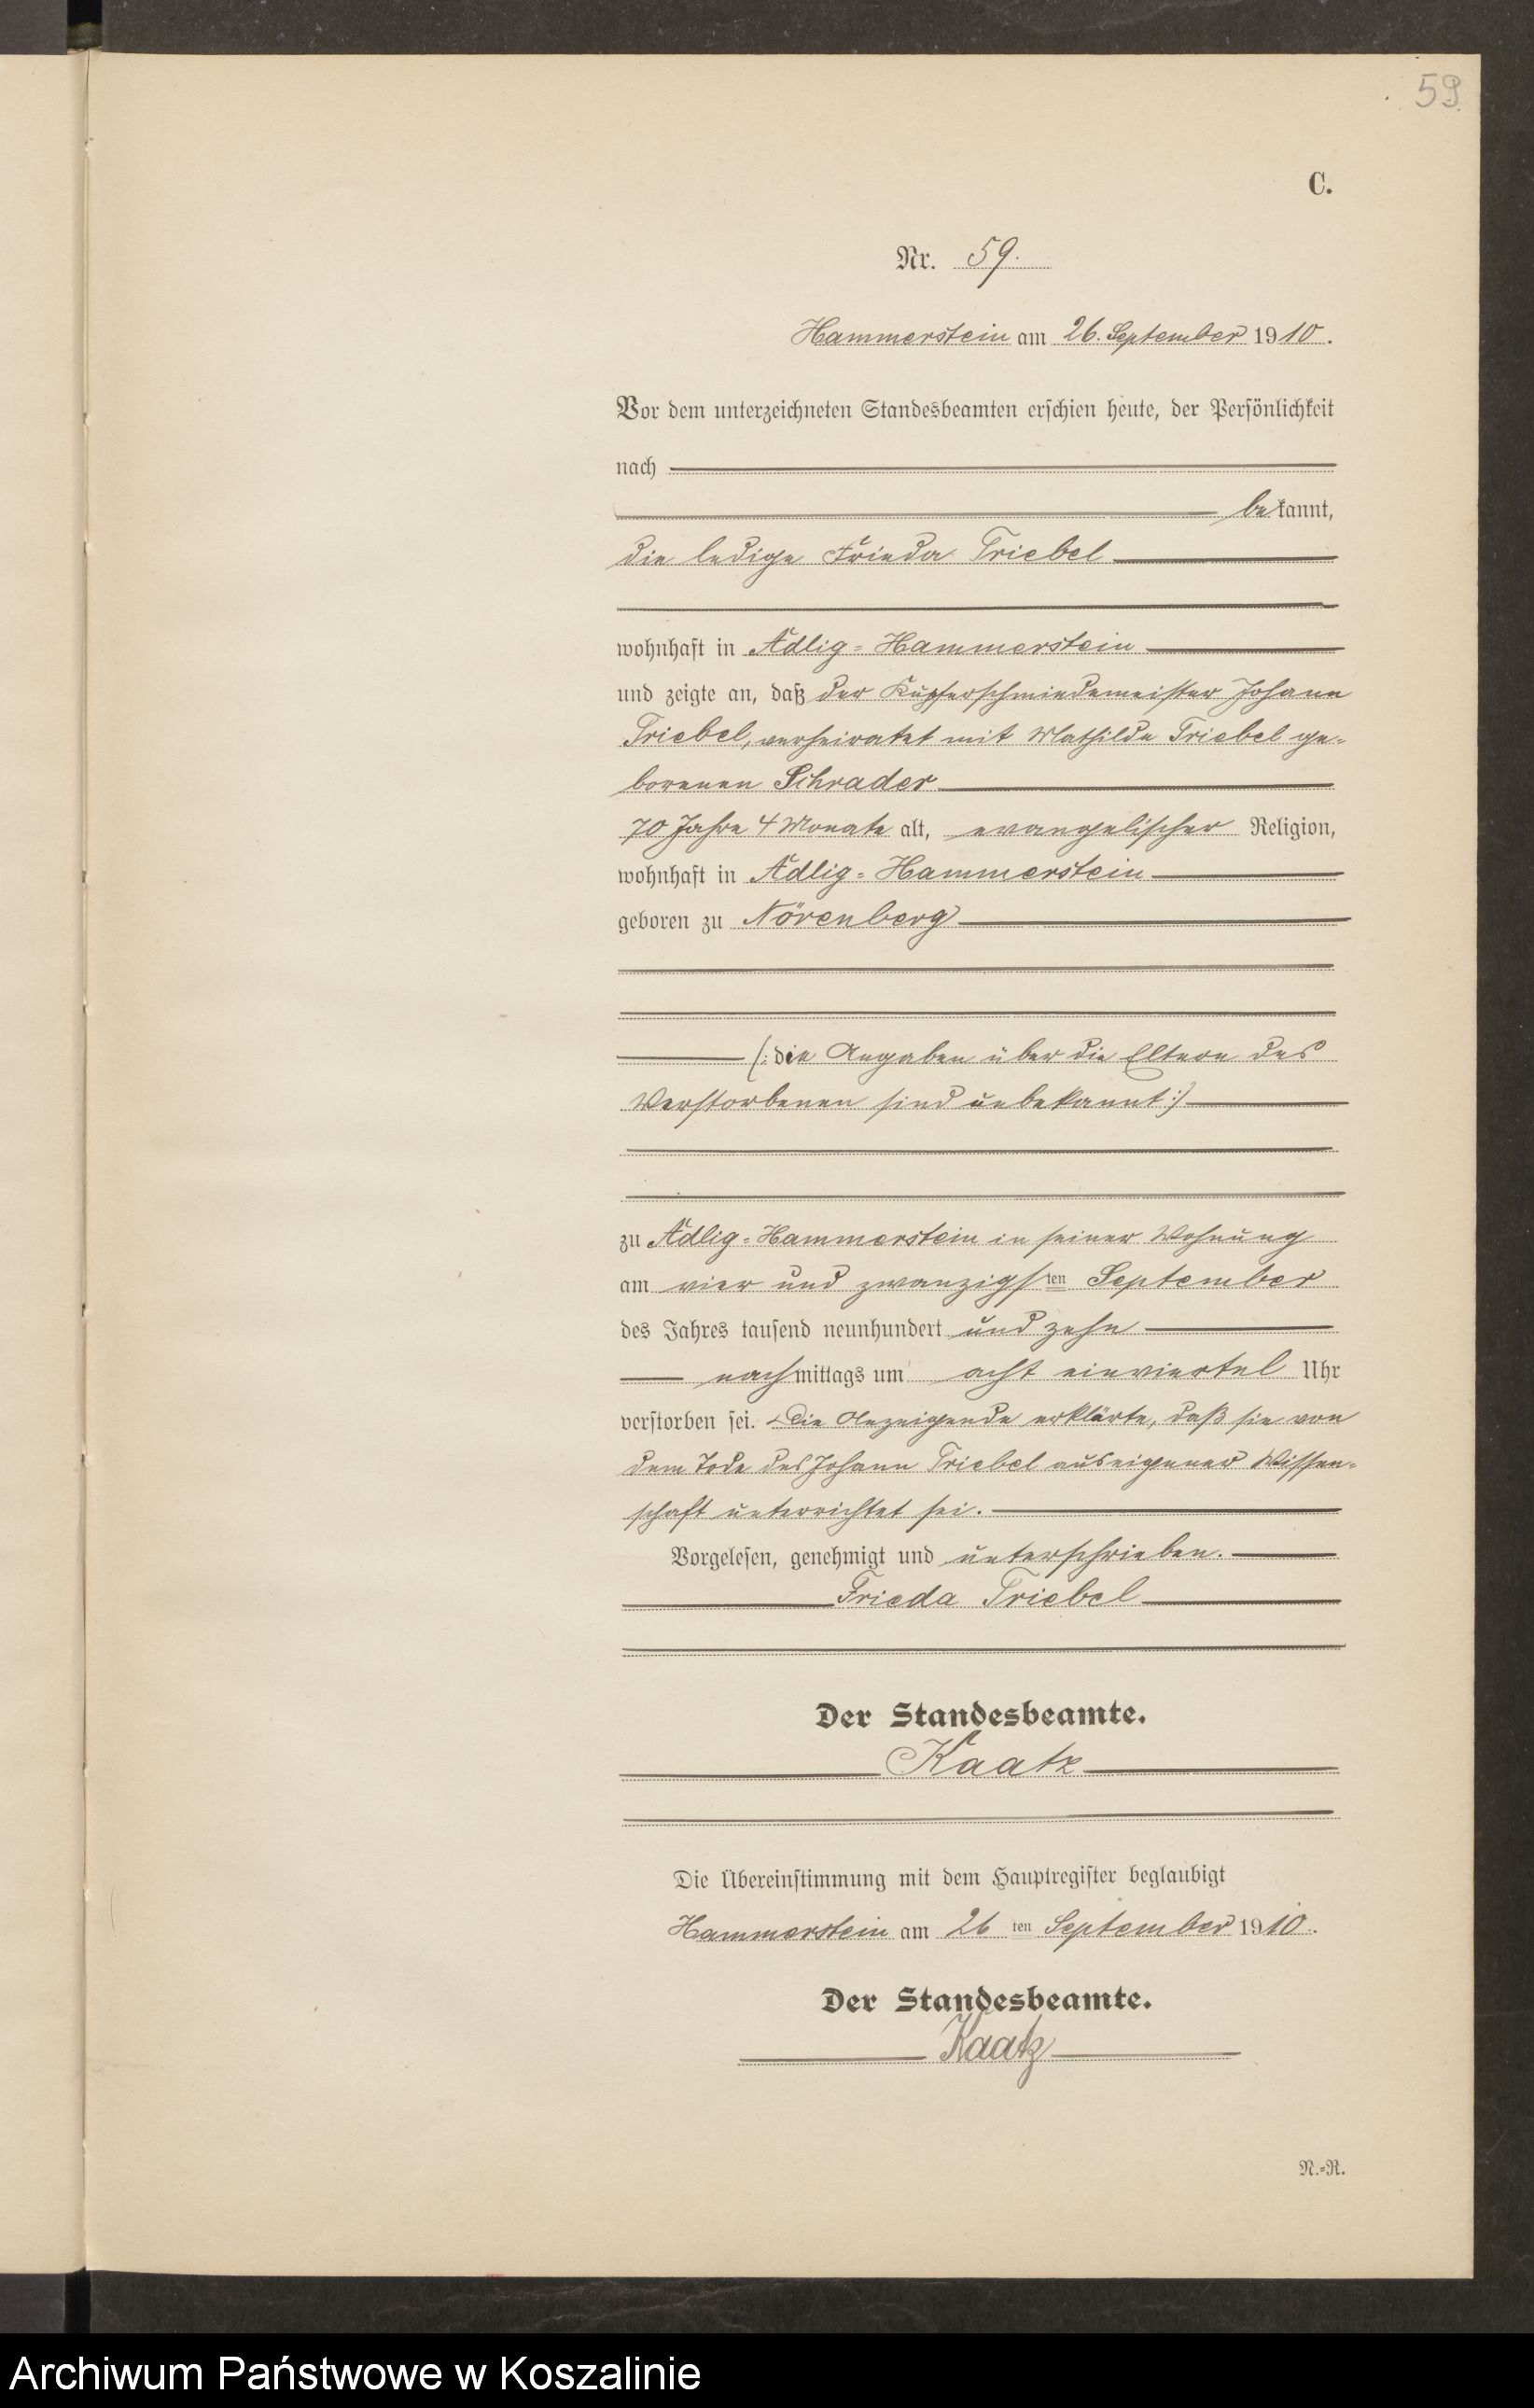 59
C.
Nr. 59.
Hammerstein am 26. September 1910.
Vor dem unterzeichneten Standesbeamten erschien heute, der Persönlichkeit
nach
bekannt,
die ledige Frieda Triebel
wohnhaft in Adlig-Hammerstein
und zeigte an, daß der Kupferschmiedemeister Johann
Triebel, verheiratet mit Mathilde Triebel ge-
borenen Schrader
70 Jahre 4 Monate alt, evangelischer Religion,
wohnhaft in Adlig-Hammerstein
geboren zu Nörenberg
(: die Angaben über die Eltern des
Verstorbenen sind unbekannt :)
zu Adlig-Hammerstein in seiner Wohnung
am vier und zwanzigsten September
des Jahres tausend neunhundert und zehn
nachmittags um acht einviertel Uhr
verstorben sei. Die Anzeigende erklärte, daß sie von
dem Tode des Johann Triebel aus eigener Wissen-
schaft unterrichtet sei.
Vorgelesen, genehmigt und unterschrieben.
Frieda Triebel
Der Standesbeamte.
Kaatz
Die Übereinstimmung mit dem Hauptregister beglaubigt
Hammerstein am 26 ten September 1910.
Der Standesbeamte.
Kaatz
N.-R.
Archiwum Państwowe w Koszalinie